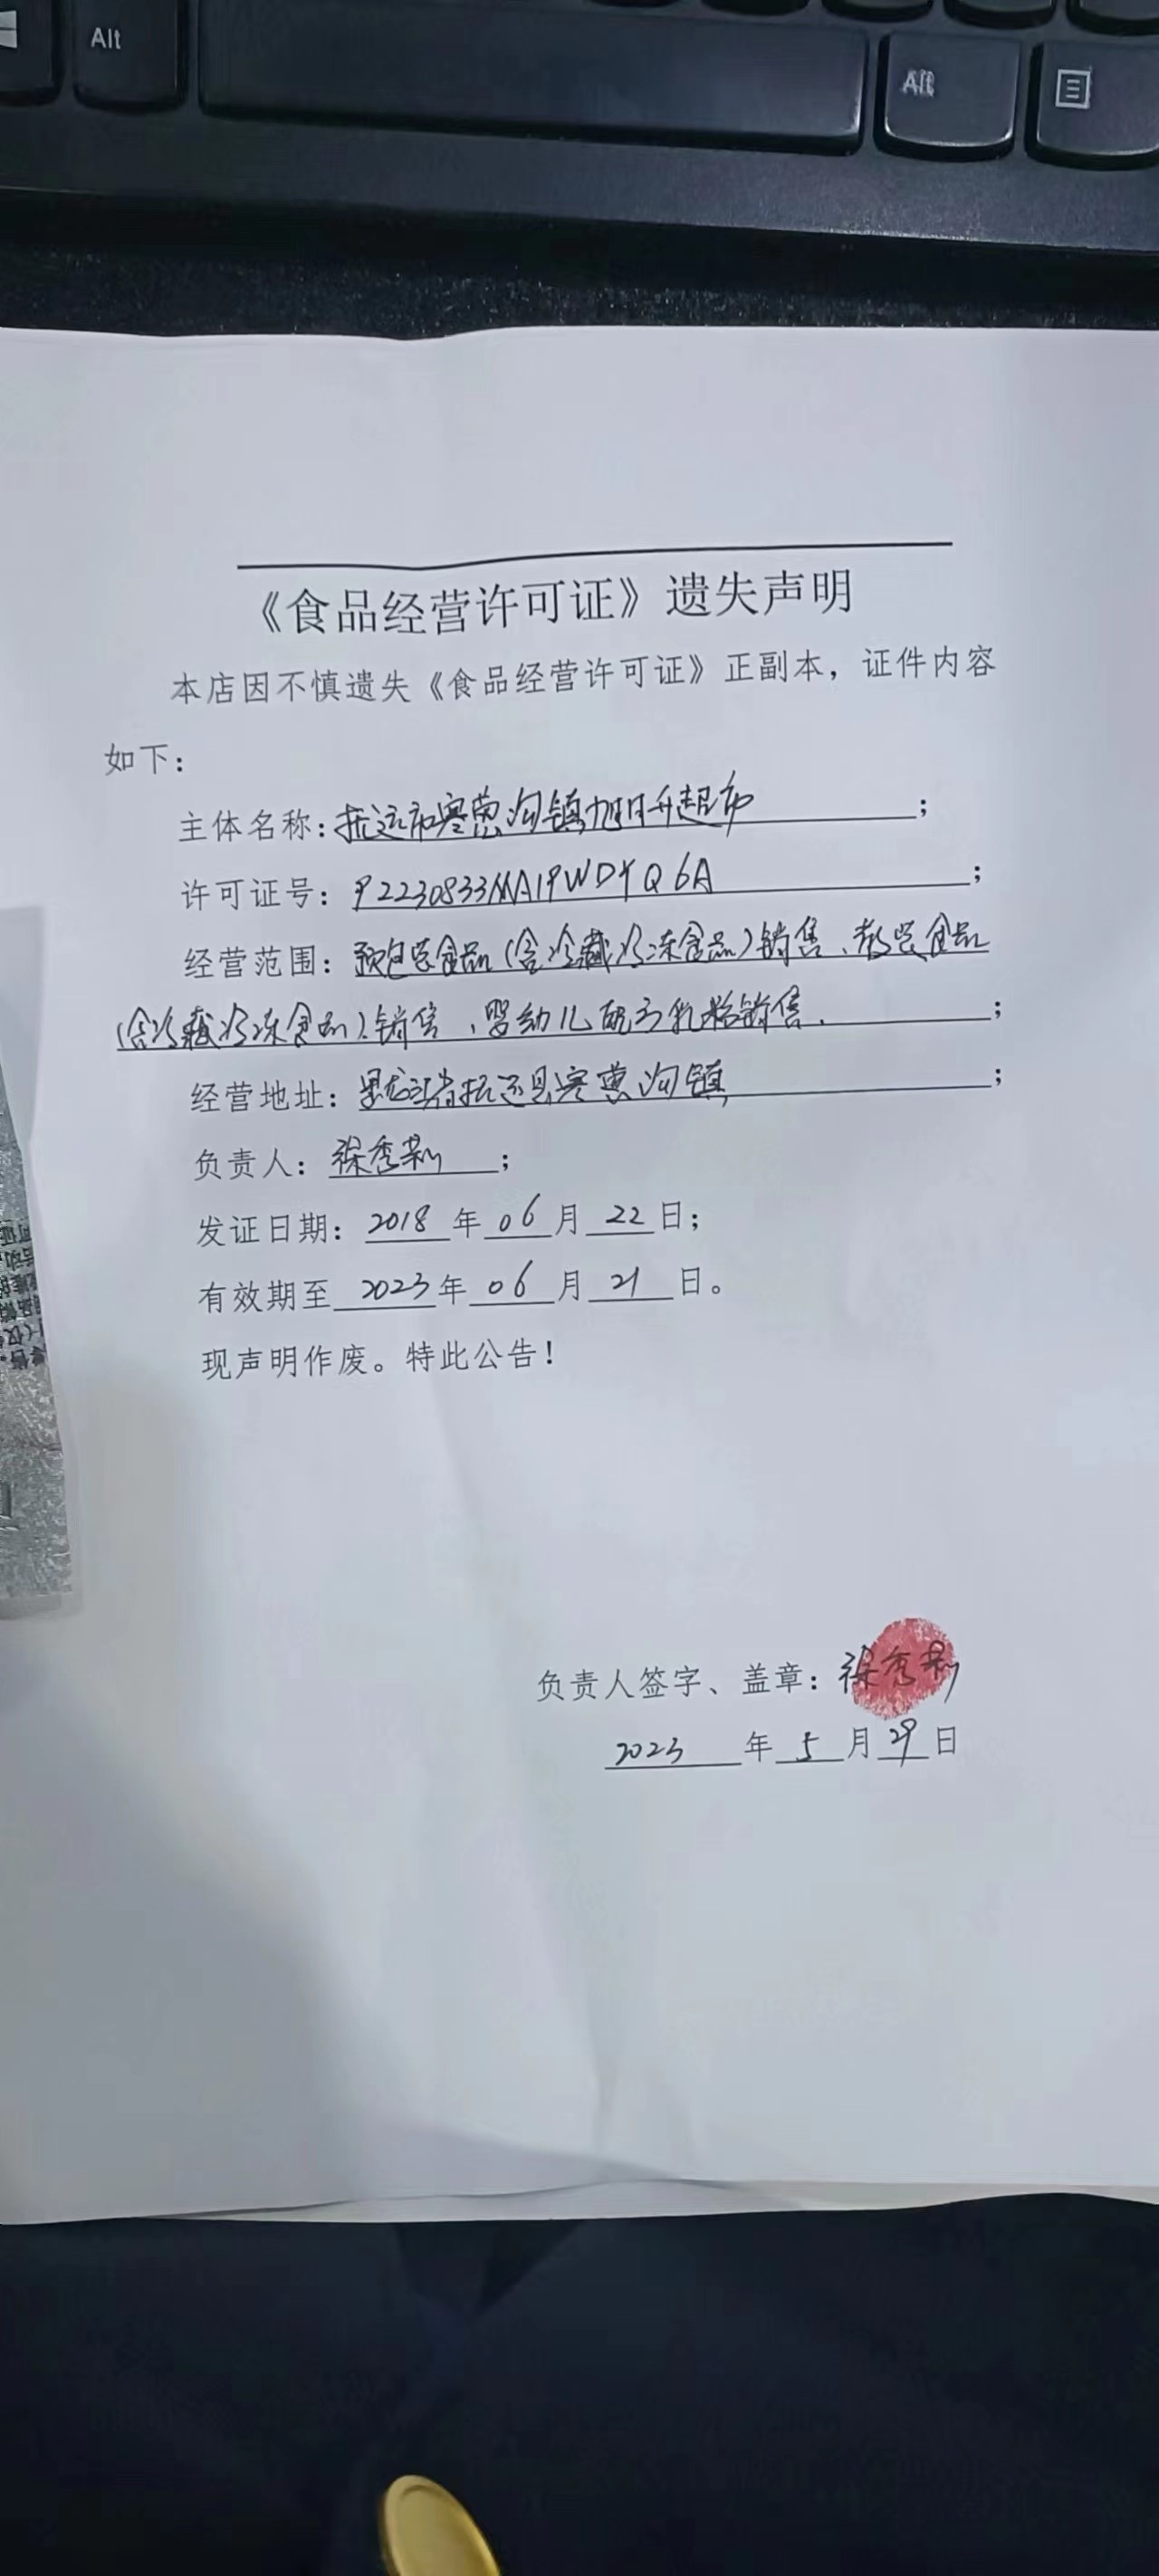 Alt
Alt
《食品经营许可证》遗失声明
本店因不慎遗失《食品经营许可证》正副本，证件内容
如下：
主体名称：抚远市寒葱沟镇旭日升超市；
许可证号：92230833MA19WDYQ6A；
经营范围：预包装食品(含冷藏冷冻食品)销售、散装食品
(含冷藏冷冻食品)销售、婴幼儿配方乳粉销售.；
经营地址：黑龙江省抚远县寒葱沟镇；
负责人：徐秀莉；
发证日期：2018年06月22日；
有效期至2023年06月21日。
现声明作废。特此公告！
负责人签字、盖章：徐秀莉
2023年5月29日